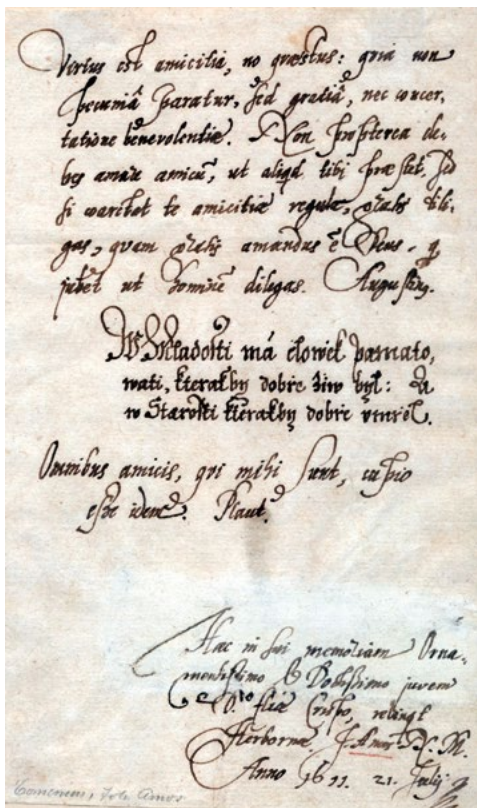 Virtus est amicitia, no quæstus: quia non
pecuniâ paratur, sed gratiâ, nec concer,
tatione benevolentiæ. Non propterea de,
bes amare amicũ, ut aliqd tibi præstet, sed
si te amicitiæ dili,
gas, quam gratis amandus ẽ Deus, q
jubet ut hominẽ diligas. Augustin9.
W Mladosti má človek pamato,
wati, kterakby dobře žiw byl: A
w Starosti kterakby dobře vmřel.
Omnibus amicis, qui mihi sunt, cupio
esse idem. Plaut.
Hæc in sui memoriam Orna,
mentissimo & Doctissimo juveni
D. Crispo, relinqt
Herbornæ J. Amos N. M.
Anno 1611. 21. Julij
Comenius, Joh. Amos